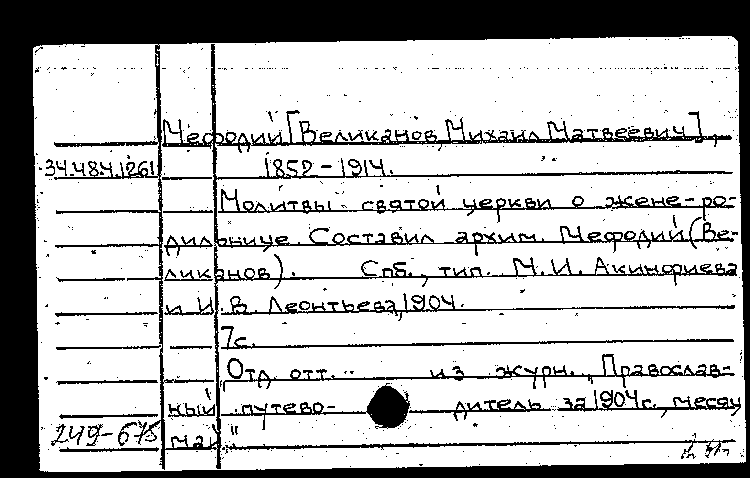 Мефодий [Великанов, Михаил Матвеевич],
34.48.4.1261 1852-1914.
Молитвы святой церкви о жене-ро-
дильнице. Составил архим. Мефодий (Ве-
ликанов). Спб., тип. М. И. Акинфиева
и И. В. Леонтьева, 1904.
7с.
Отд. отт. из журн. "Православ-
ный путево- дитель за 1904г., месяц
249-675 май"